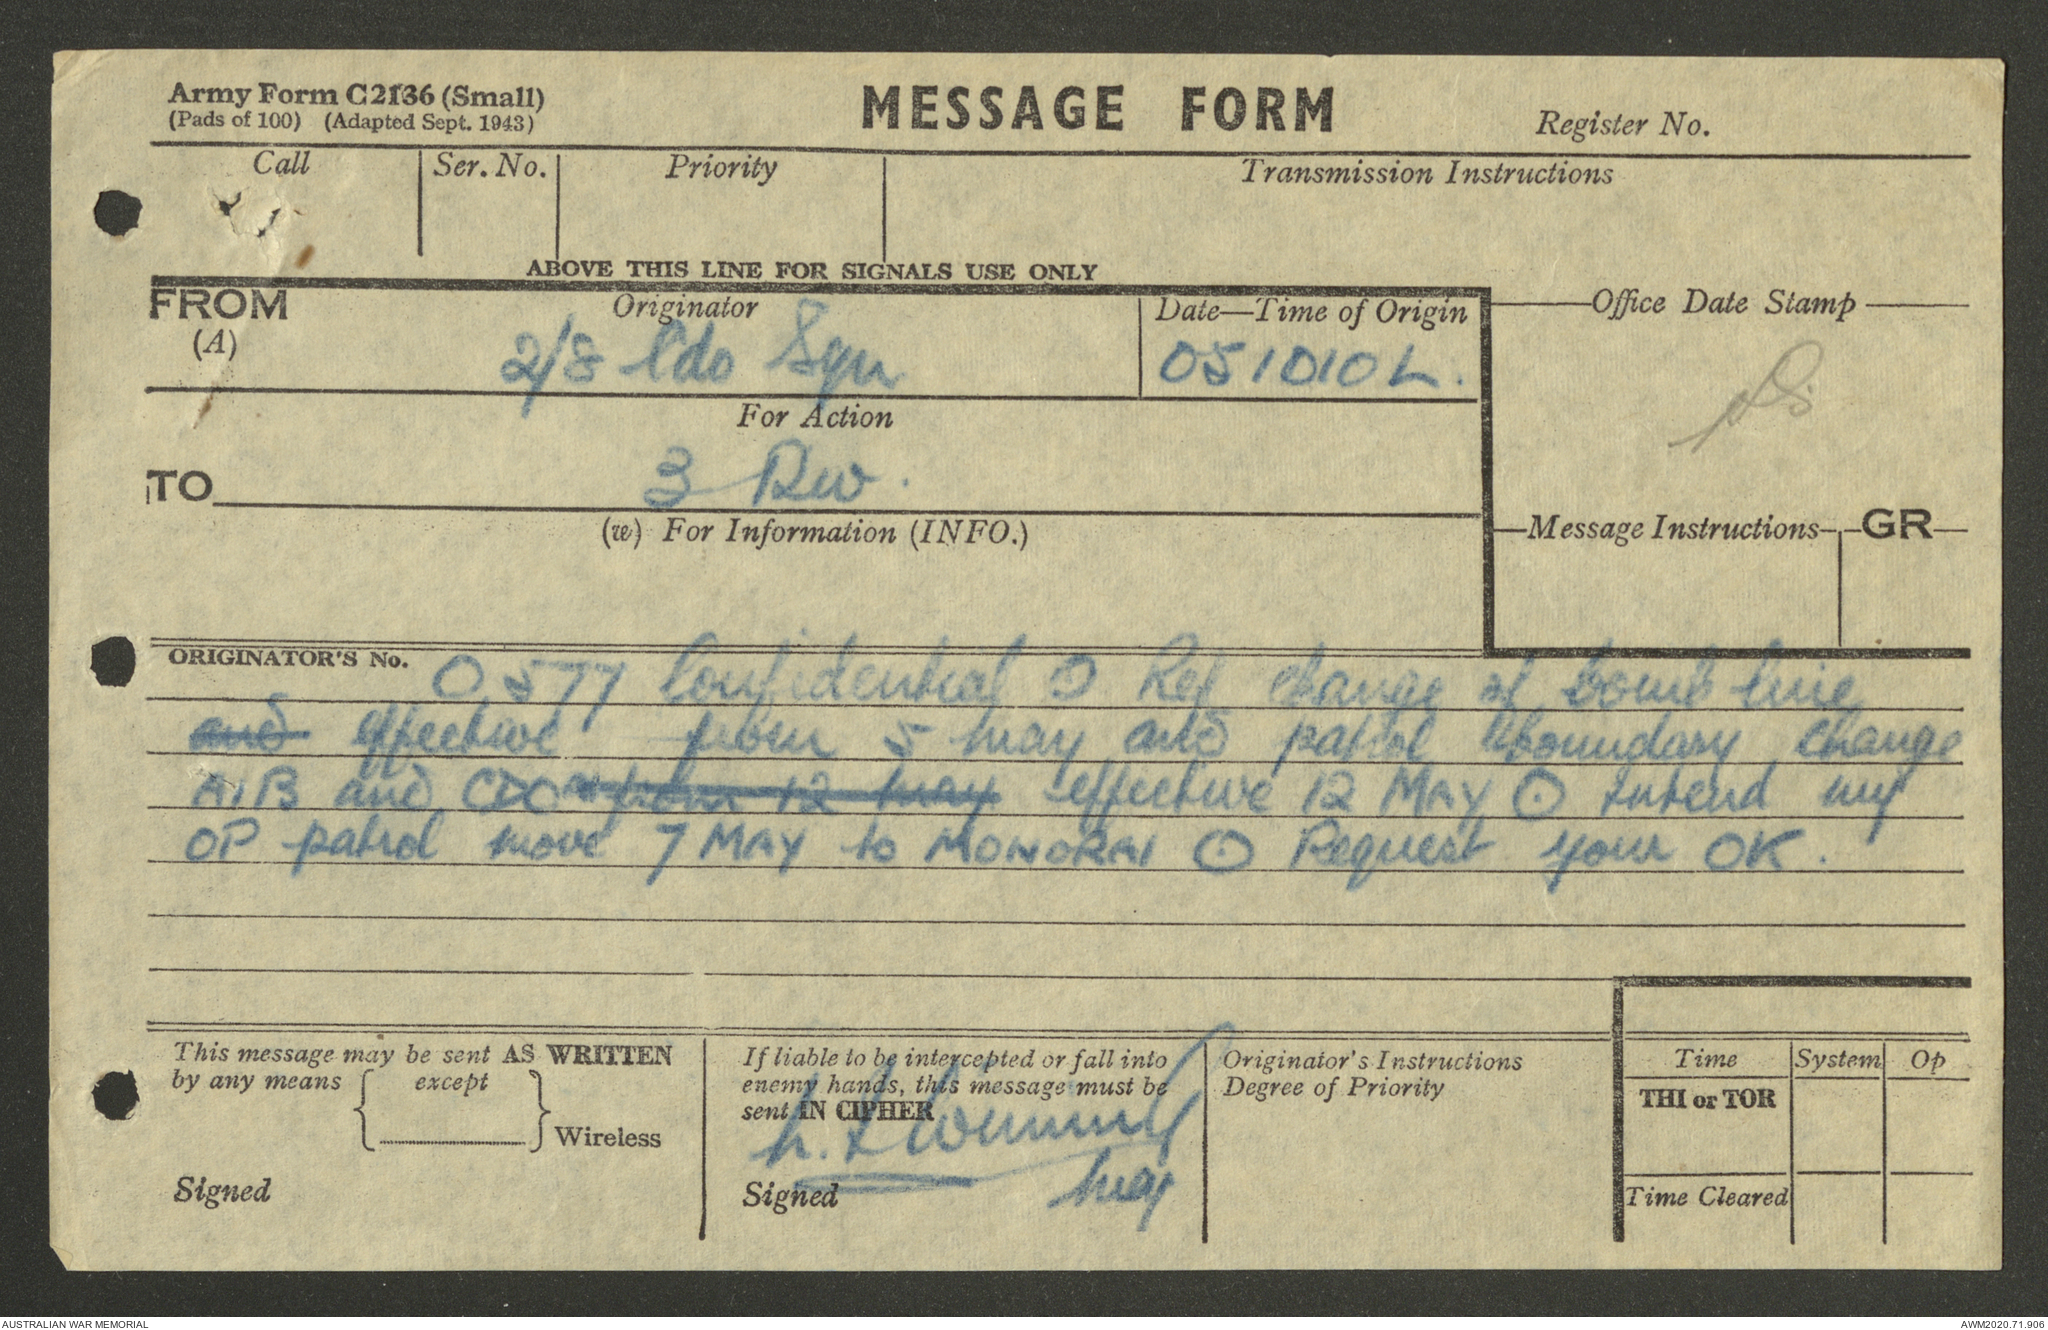 Army Form C2136 (Small)
(Pads of 100) (Adapted Sept. 1943)
MESSAGE FORM
Register No.
Call
Ser. No.
Priority
Transmission Instructions
ABOVE THIS LINE FOR SIGNALS USE ONLY
FROM
(A)
Originator
2/8 Cdo Sqn
Date—Time of Origin
051010L.
Office Date Stamp
For Action
TO
3 Div.
(w) For Information (INFO.)
Message Instructions
GR
ORIGINATOR'S No.
O577 Confidential O Ref change of bomb line
and effective from 5 may and patrol boundary change
AIB and from 12 may effective 12 MAY O Intend my
OP patrol move 7 MAY to MONORAI O Request your OK.
This message may be sent AS WRITTEN
by any means { except }
Wireless
Signed
If liable to be intercepted or fall into
enemy hands, this message must be
sent IN CIPHER
Signed
Maj
Originator's Instructions
Degree of Priority
Time
System
Op
THI or TOR
Time Cleared
AUSTRALIAN WAR MEMORIAL
AWM2020.71.906